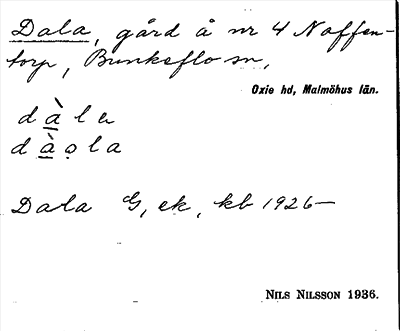 Dala, gård å nr 4 Naffen-
torp, Bunkeflo sn,
Oxie hd, Malmöhus län.
d à l a
d à o l a
Dala G, ek, kb 1926—
NILS NILSSON 1936.